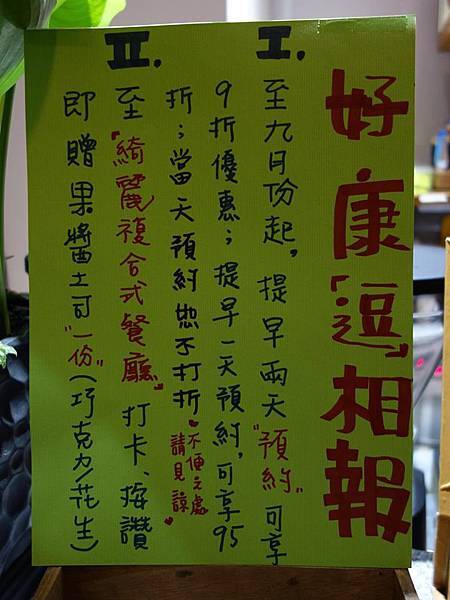 好康「逗」相報
I.
至九月份起，提早兩天"預約"可享
9折優惠；提早一天預約，可享95
折；當天預約恕不打折♥不便之處
請見諒♥
II.
至"綺麗複合式餐廳"打卡、按讚
即贈果醬土司"一份"(巧克力/花生)